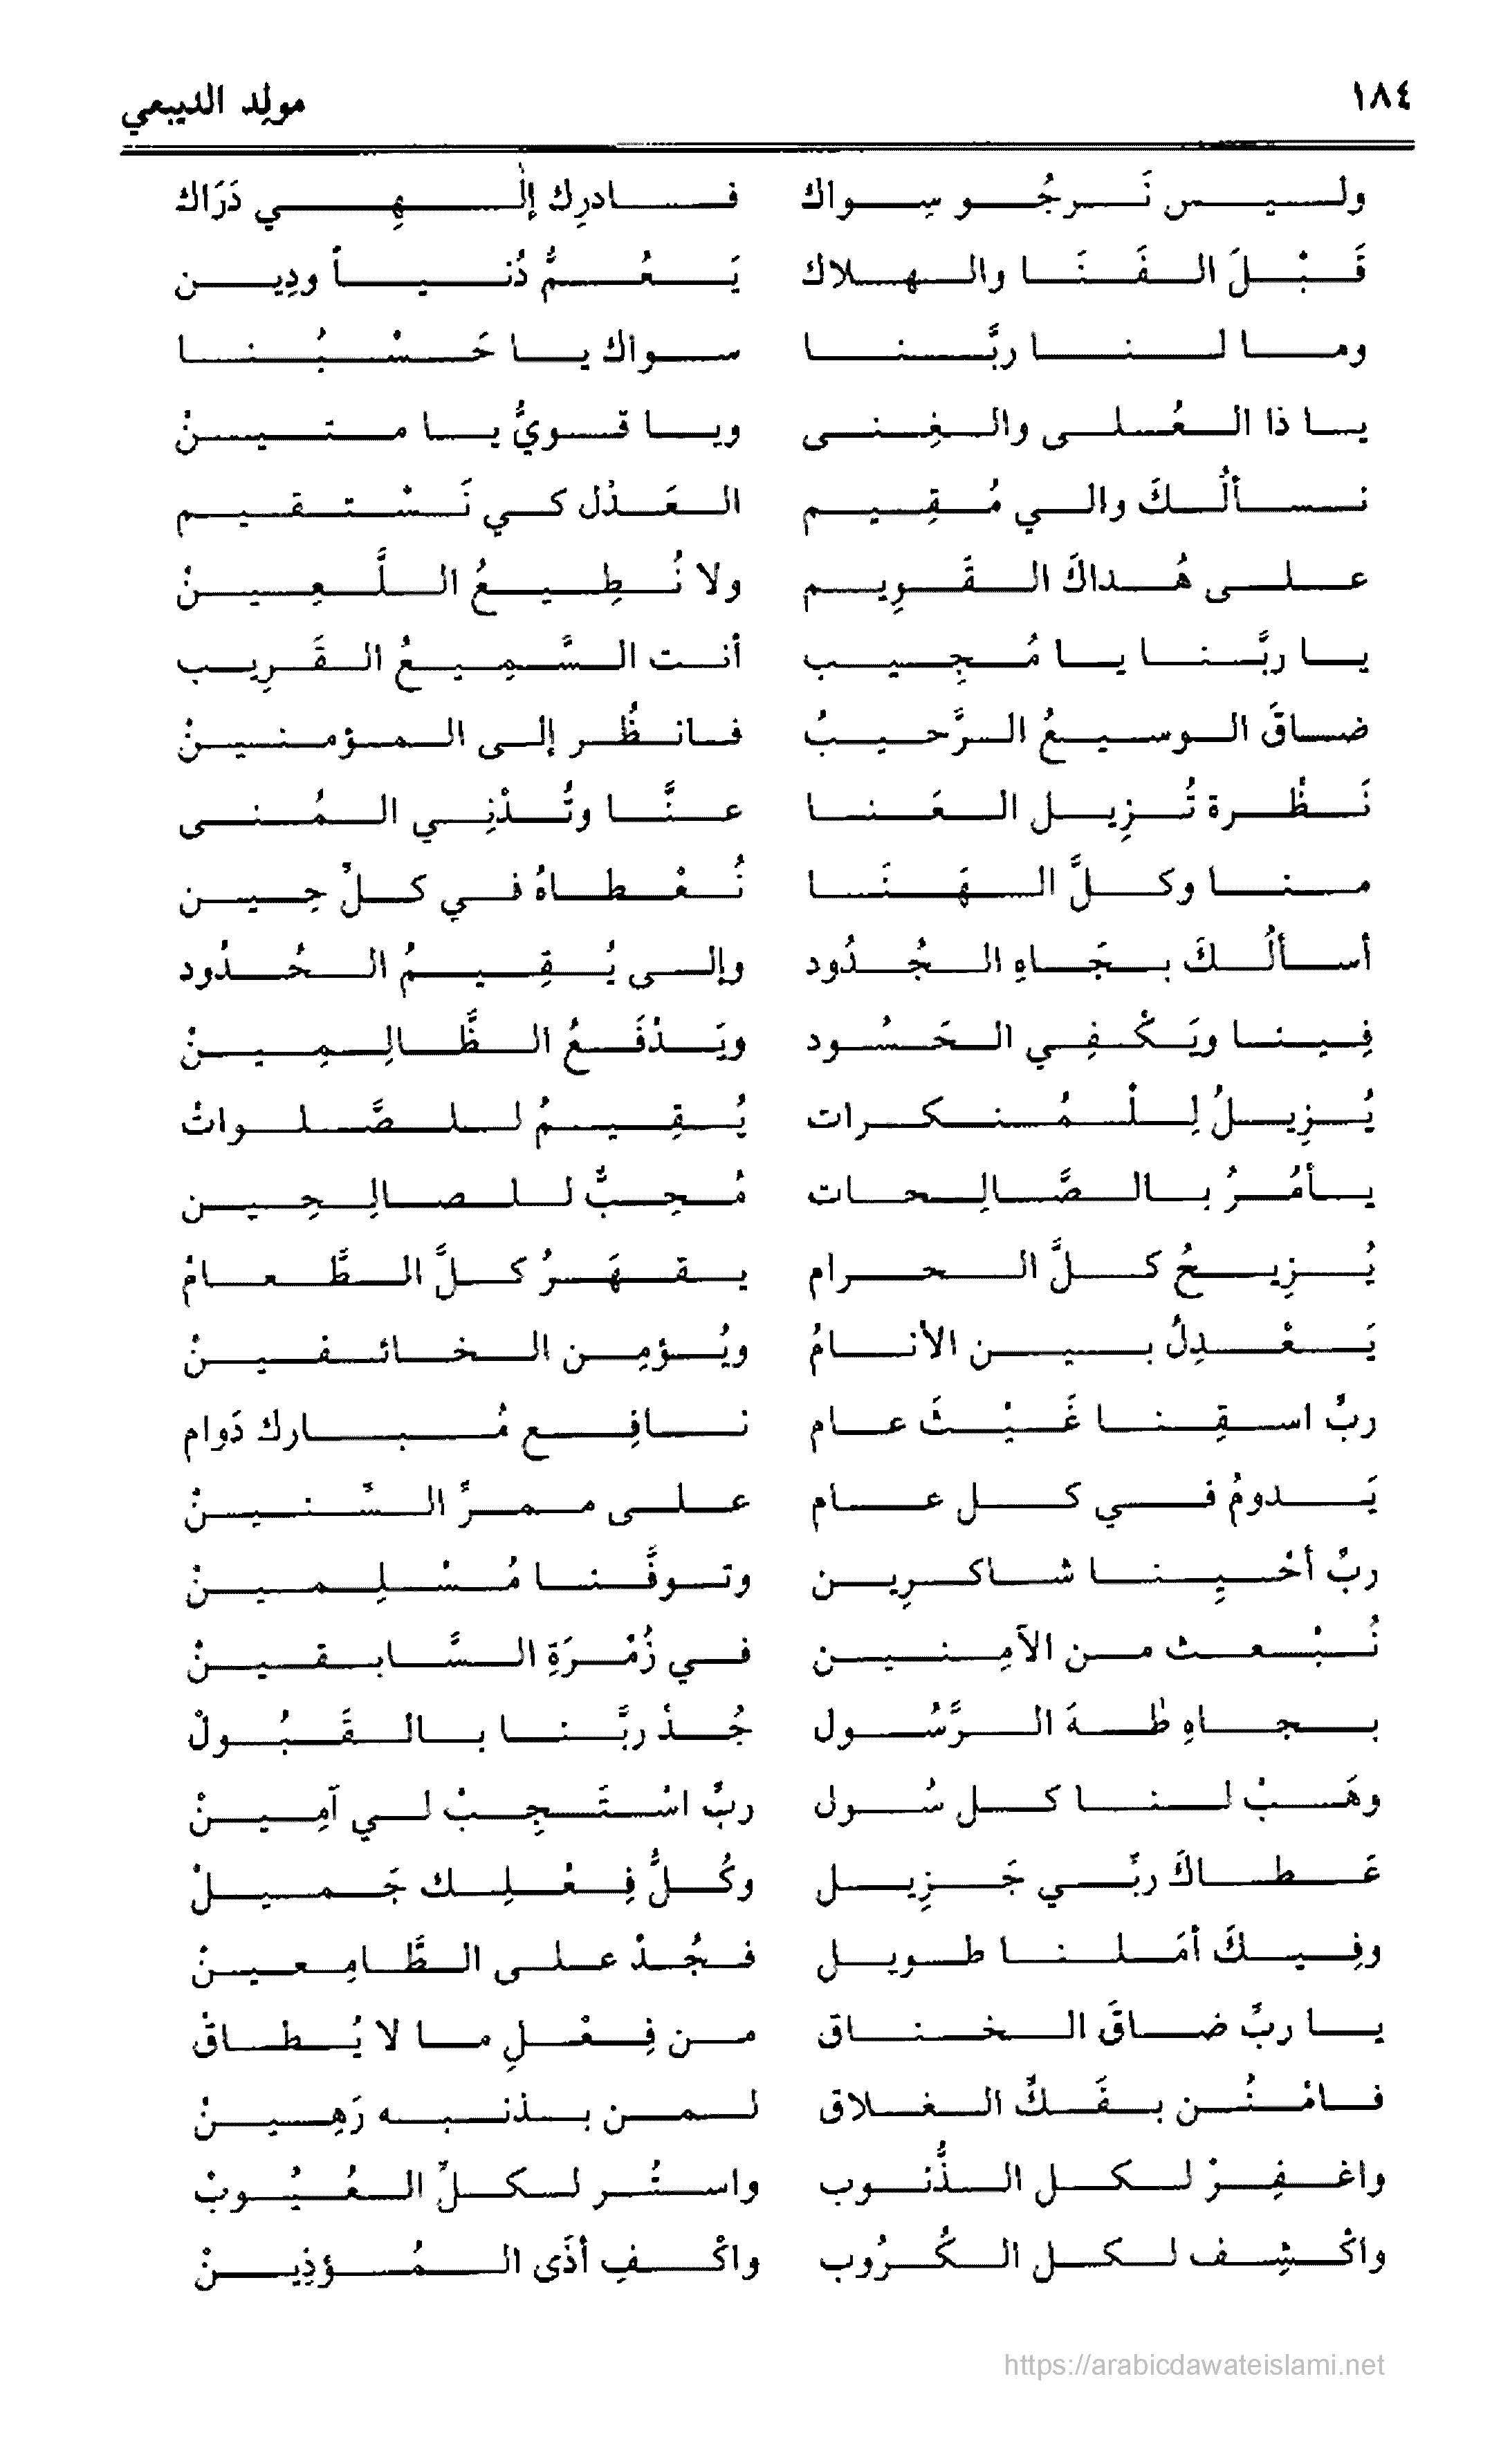 ١٨٤ مولِد الديبعي
وليس نَرجُو سِواك فادرِك إلٰهِي دَرَاك
قَبْلَ الفَنَا والهلاك يَعُمُّ دُنياً ودِين
وما لنا ربَّنا سواك يا حَسْبُنا
يا ذا العُلى والغِنى ويا قويُّ يا متينْ
نسألُكَ والي مُقِيم العَدْل كي نَسْتقيم
على هُداكَ القَوِيم ولا نُطِيعُ اللَّعِينْ
يا ربَّنا يا مُجِيب أنت السَّمِيعُ القَرِيب
ضاقَ الوسيعُ الرَّحيبُ فانظُر إلى المؤمنينْ
نَظْرة تُزِيل العَنا عنَّا وتُدْنِي المُنى
منا وكلَّ الهَنَا نُعْطاهُ في كلِّ حِين
أسألُكَ بجَاهِ الجُدُود وإلى يُقِيمُ الحُدُود
فِينا ويَكْفِي الحَسُود ويَدْفَعُ الظَّالِمِينْ
يُزِيلُ لِلْمُنكرات يُقِيمُ للصَّلواتْ
يأمُرُ بالصَّالِحات مُحِبٌّ للصالِحِين
يُزِيحُ كلَّ الحرام يقهَرُ كلَّ الطَّعامْ
يَعْدِلُ بين الأنامُ ويُؤمِن الخائفينْ
ربِّ اسقِنا غَيْثَ عام نافِع مُبارك دَوام
يَدومُ في كل عام على ممرِّ السِّنينْ
ربِّ أحْيِنا شاكرِين وتوفَّنا مُسْلِمينْ
نُبْعث من الآمِنين في زُمْرَةِ السَّابقينْ
بجاهِ طٰهَ الرَّسُول جُدْ ربَّنا بالقَبُولْ
وهَبْ لنا كل سُول ربِّ اسْتَجِبْ لي آمِينْ
عَطاكَ ربِّي جَزِيل وكُلُّ فِعْلِك جَميلْ
وفِيكَ أمَلنا طويل فجُدْ على الطَّامِعينْ
يا ربِّ ضاقَ الخناق من فِعْلِ ما لا يُطاقْ
فامْنُن بفَكِّ الغلاق لمن بذنبه رَهِينْ
واغفِرْ لكل الذُّنوب واستُر لكلِّ العُيُوبْ
واكْشِف لكل الكُرُوب واكْفِ أذَى المُؤذِينْ
https://arabicdawateislami.net